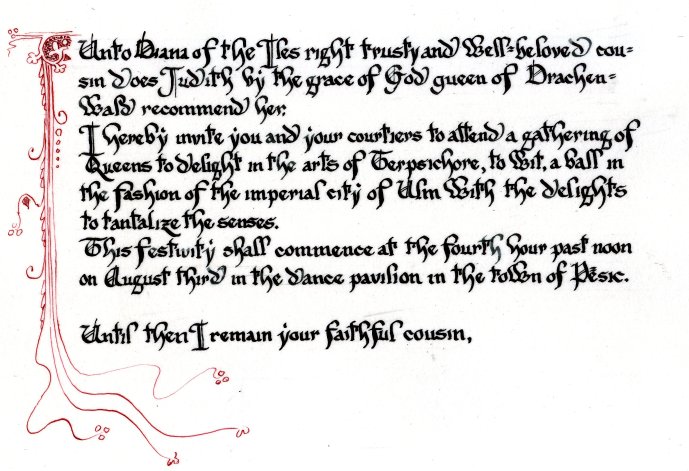 Unto Diana of the Iles right trusty and well=beloved cou=
sin does Judith by the grace of God queen of Drachen=
wald recommend her.
I hereby invite you and your courtiers to attend a gathering of
Queens to delight in the arts of Terpsichore, to wit, a ball in
the fashion of the imperial city of Ulm with the delights
to tantalize the senses.
This festivity shall commence at the fourth hour past noon
on August third in the dance pavilion in the town of Pēsic.
Until then I remain your faithful cousin,